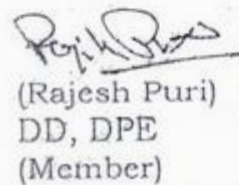 (Rajesh Puri)
DD, DPE
(Member)